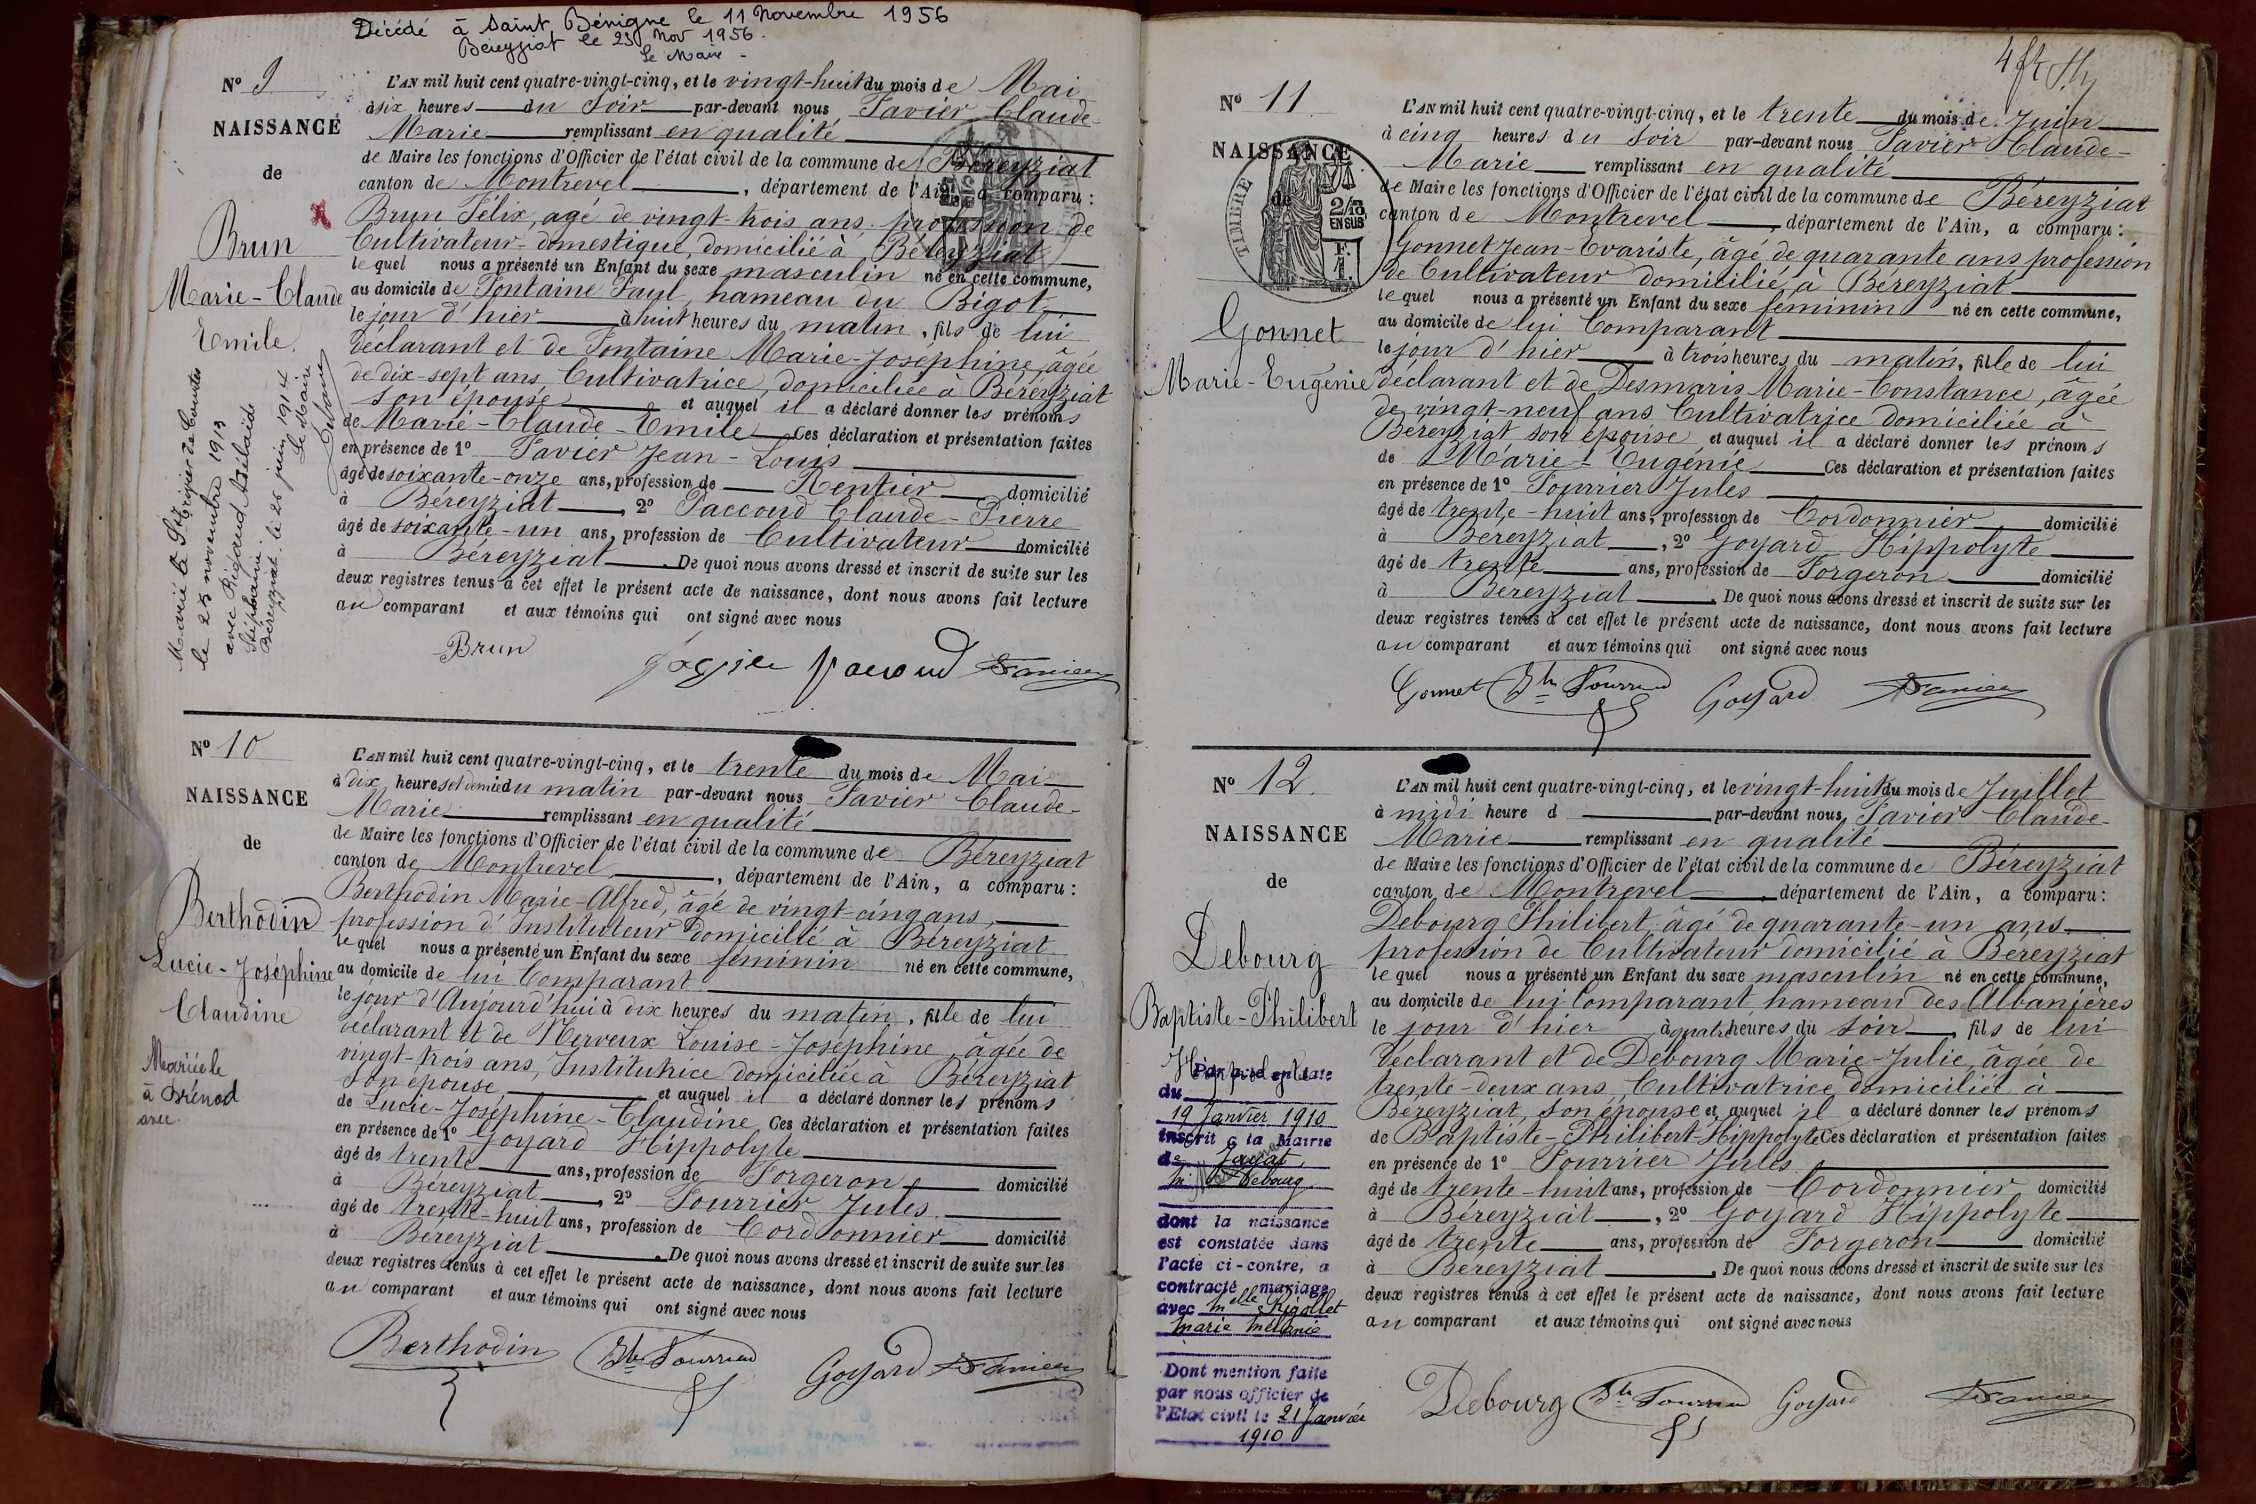 Décédé à Saint Bénigne le 11 Novembre 1956
Béreyziat le 23 Nov 1956.
Le Maire -
N° 9
NAISSANCE
de
Brun
Marie-Claude
Emile.
le 25 novembre 1913
avec Rigaud Adelaïde
Béreyziat le 26 juin 1914
Le Maire
L'AN mil huit cent quatre-vingt-cinq, et le vingt-huit du mois de Mai
à six heures du soir par-devant nous Favier Claude-
Marie remplissant en qualité
de Maire les fonctions d'Officier de l'état civil de la commune de Béreyziat
canton de Montrevel, département de l'Ain, a comparu :
Brun Félix, agé de vingt-trois ans profession de
Cultivateur-domestique, domicilié à Béreyziat
lequel nous a présenté un Enfant du sexe masculin né en cette commune,
au domicile de Fontaine Fayl, hameau du Bigot
le jour d'hier à huit heures du matin, fils de lui
déclarant et de Fontaine Marie-Joséphine, âgée
de dix-sept ans, Cultivatrice, domiciliée à Béreyziat
son épouse et auquel il a déclaré donner les prénoms
de Marie-Claude-Emile Ces déclaration et présentation faites
en présence de 1° Favier Jean-Louis
âgé de soixante-onze ans, profession de Rentier domicilié
à Béreyziat, 2° Paccoud Claude-Pierre
âgé de soixante-un ans, profession de Cultivateur domicilié
à Béreyziat. De quoi nous avons dressé et inscrit de suite sur les
deux registres tenus à cet effet le présent acte de naissance, dont nous avons fait lecture
au comparant et aux témoins qui ont signé avec nous
Brun Favier Paccoud Favier
N° 10
NAISSANCE
de
Berthodin
Lucie-Joséphine
Claudine
Mariée le
à Brénod
avec
L'AN mil huit cent quatre-vingt-cinq, et le trente du mois de Mai
à dix heures et demie du matin par-devant nous Favier Claude-
Marie remplissant en qualité
de Maire les fonctions d'Officier de l'état civil de la commune de Béreyziat
canton de Montrevel, département de l'Ain, a comparu :
Berthodin Marie-Alfred, âgé de vingt-cinq ans,
profession d'Instituteur domicilié à Béreyziat
lequel nous a présenté un Enfant du sexe féminin né en cette commune,
au domicile de lui Comparant
le jour d'Aujourd'hui à dix heures du matin, fille de lui
déclarant et de Nerveux Louise-Joséphine, âgée de
vingt-trois ans, Institutrice domiciliée à Béreyziat
son épouse et auquel il a déclaré donner les prénoms
de Lucie-Joséphine-Claudine Ces déclaration et présentation faites
en présence de 1° Goyard Hippolyte
âgé de trente ans, profession de Forgeron domicilié
à Béreyziat, 2° Fourrier Jules
âgé de trente-huit ans, profession de Cordonnier domicilié
à Béreyziat. De quoi nous avons dressé et inscrit de suite sur les
deux registres tenus à cet effet le présent acte de naissance, dont nous avons fait lecture
au comparant et aux témoins qui ont signé avec nous
Berthodin Goyard Favier
N° 11
NAISSANCE
de
TIMBRE
2/10
EN SUS
Gonnet
Marie-Eugénie
L'AN mil huit cent quatre-vingt-cinq, et le trente du mois de Juin
à cinq heures du soir par-devant nous Favier Claude-
Marie remplissant en qualité
de Maire les fonctions d'Officier de l'état civil de la commune de Béreyziat
canton de Montrevel, département de l'Ain, a comparu :
Gonnet Jean-Evariste, âgé de quarante ans profession
de Cultivateur domicilié à Béreyziat
lequel nous a présenté un Enfant du sexe féminin né en cette commune,
au domicile de lui Comparant
le jour d'hier à trois heures du matin, fille de lui
déclarant et de Desmaris Marie-Constance, âgée
de vingt-neuf ans Cultivatrice domiciliée à
Béreyziat son épouse et auquel il a déclaré donner les prénoms
de Marie-Eugénie Ces déclaration et présentation faites
en présence de 1° Fourrier Jules
âgé de trente-huit ans, profession de Cordonnier domicilié
à Béreyziat, 2° Goyard Hippolyte
âgé de trente ans, profession de Forgeron domicilié
à Béreyziat. De quoi nous avons dressé et inscrit de suite sur les
deux registres tenus à cet effet le présent acte de naissance, dont nous avons fait lecture
au comparant et aux témoins qui ont signé avec nous
Gonnet Goyard Favier
N° 12
NAISSANCE
de
Debourg
Baptiste-Philibert
Hippolyte
Par acte en date
du
19 Janvier 1910
inscrit à la Mairie
de Jayat,
M. Debourg
dont la naissance
est constatée dans
l'acte ci-contre, a
contracté mariage
avec Melle Rigollet
Marie Mélanie
Dont mention faite
par nous officier de
l'Etat civil le 21 Janvier
1910
L'AN mil huit cent quatre-vingt-cinq, et le vingt-huit du mois de Juillet
à midi heure d par-devant nous Favier Claude-
Marie remplissant en qualité
de Maire les fonctions d'Officier de l'état civil de la commune de Béreyziat
canton de Montrevel, département de l'Ain, a comparu :
Debourg Philibert, âgé de quarante-un ans
profession de Cultivateur domicilié à Béreyziat
lequel nous a présenté un Enfant du sexe masculin né en cette commune,
au domicile de lui Comparant, hameau des Albanières
le jour d'hier à quatre heures du soir, fils de lui
déclarant et de Debourg Marie-Julie, âgée de
trente-deux ans, Cultivatrice domiciliée à
Béreyziat, son épouse et auquel il a déclaré donner les prénoms
de Baptiste-Philibert-Hippolyte Ces déclaration et présentation faites
en présence de 1° Fourrier Jules
âgé de trente-huit ans, profession de Cordonnier domicilié
à Béreyziat, 2° Goyard Hippolyte
âgé de trente ans, profession de Forgeron domicilié
à Béreyziat. De quoi nous avons dressé et inscrit de suite sur les
deux registres tenus à cet effet le présent acte de naissance, dont nous avons fait lecture
au comparant et aux témoins qui ont signé avec nous
Debourg Goyard Favier